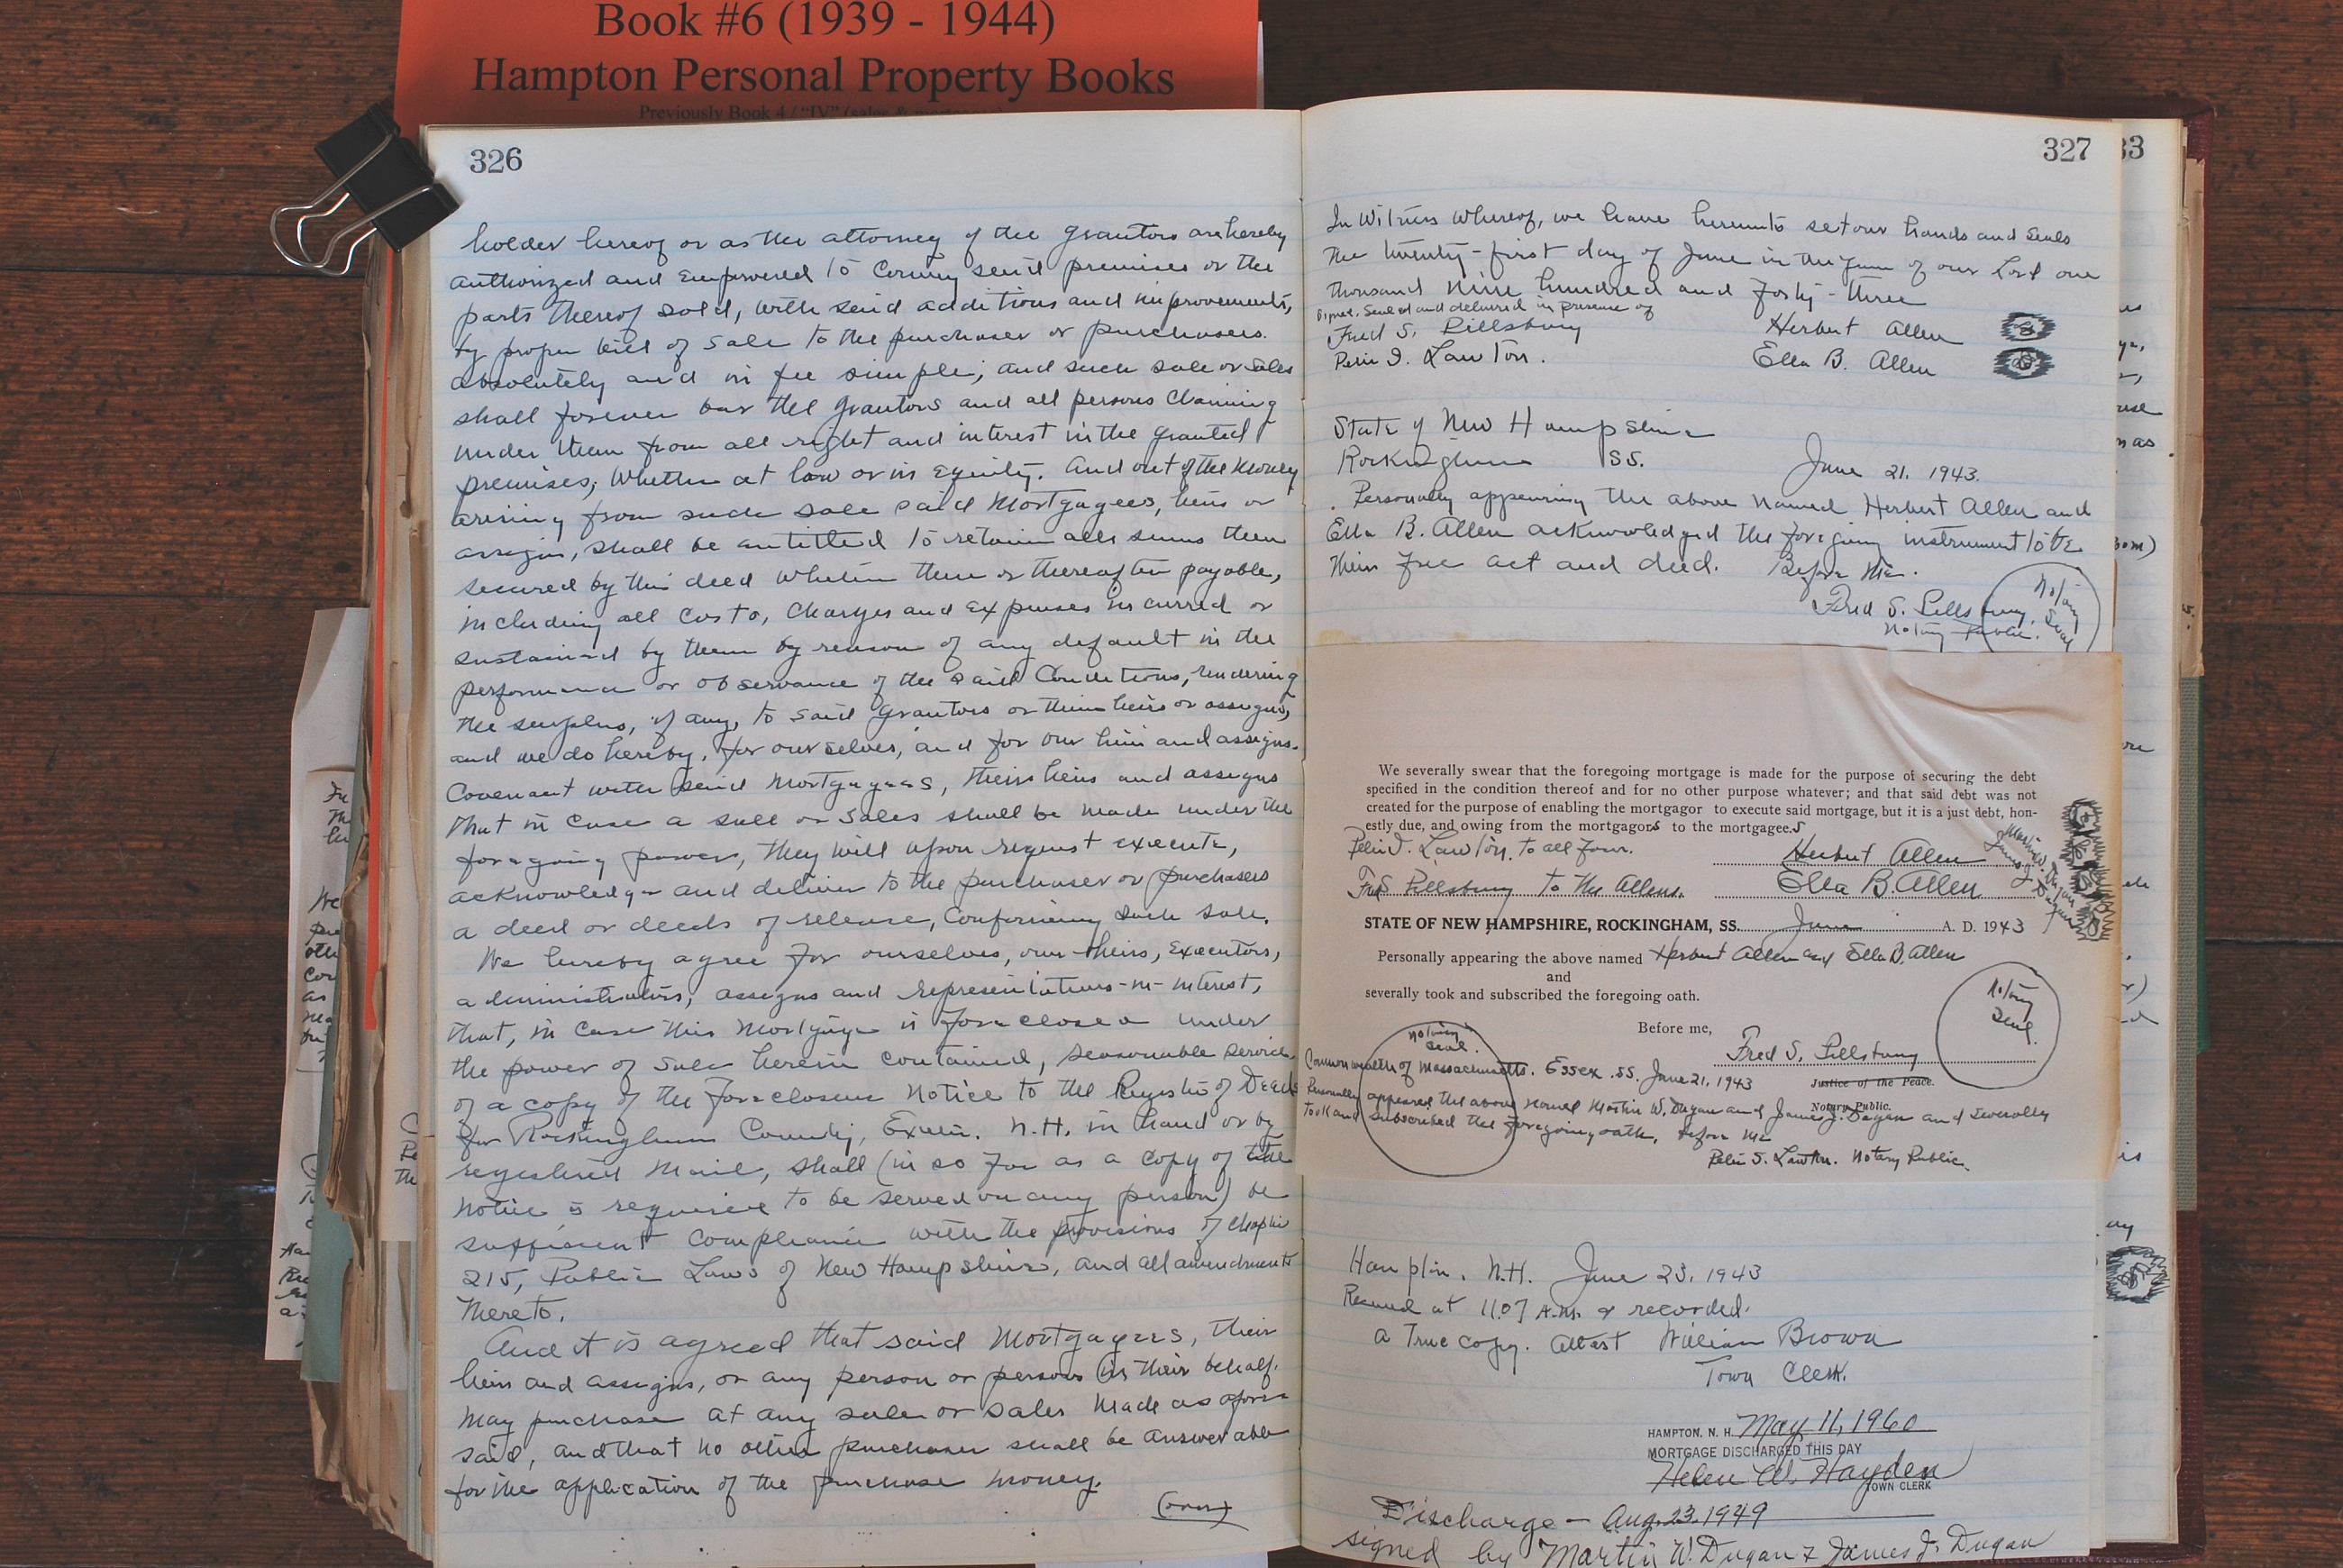 Book #6 (1939 - 1944)
Hampton Personal Property Books
Previously Book 4 / "IV" (sales & mortgages)
326
holder hereof or as the attorney of the grantors are hereby
authorized and empowered to convey said premises or the
parts thereof sold, with said additions and improvements,
by proper bill of sale to the purchaser or purchasers.
absolutely and in fee simple; and such sale or sales
shall forever bar the grantors and all persons claiming
under them from all right and interest in the granted
premises, whether at law or in equity. And out of the money
arising from such sale said Mortgagees, heirs or
assigns, shall be entitled to retain all sums then
secured by this deed whether then or thereafter payable,
including all costs, charges and expenses incurred or
sustained by them by reason of any default in the
performance or observance of the said Conditions, rendering
the surplus, if any, to said grantors or their heirs or assigns,
and we do hereby, for ourselves, and for our heirs and assigns.
Covenant with said Mortgagees, their heirs and assigns
that in case a sale or sales shall be made under the
foregoing power, they will upon request execute,
acknowledge and deliver to the purchaser or purchasers
a deed or deeds of release, Confirming such sale.
We hereby agree for ourselves, our heirs, executors,
administrators, assigns and representatives-in-interest,
that, in case this Mortgage is foreclosed under
the power of sale herein contained, seasonable service
of a copy of the foreclosure Notice to the Register of Deeds
for Rockingham County, Exeter. N.H. in hand or by
registered Mail, shall (in so far as a copy of the
notice is required to be served on any person) be
sufficient compliance with the provisions of Chapter
215, Public Laws of New Hampshire, and all amendments
thereto.
And it is agreed that said Mortgagees, their
heirs and assigns, or any person or persons in their behalf.
May purchase at any sale or sales Made as afore
said, and that no other purchaser shall be answerable
for the application of the purchase money.
(over)
327
In Witness whereof, we have hereunto set our hands and seals
the twenty-first day of June in the year of our Lord one
thousand nine hundred and forty-three
Signed, Sealed and delivered in presence of
Fred S. Pillsbury Herbert Allen S
Lawton. Ella B. Allen S
State of New Hampshire
Rockingham SS. June 21, 1943.
Personally appearing the above named Herbert Allen and
Ella B. Allen acknowledged the foregoing instrument to be
their free act and deed. Before Me.
Fred S. Pillsbury,
Notary Public.
Notary
Seal
We severally swear that the foregoing mortgage is made for the purpose of securing the debt
specified in the condition thereof and for no other purpose whatever; and that said debt was not
created for the purpose of enabling the mortgagor to execute said mortgage, but it is a just debt, hon-
estly due, and owing from the mortgagors to the mortgagees
Lawton. to all four. Herbert Allen
Fred S Pillsbury to the Allens. Ella B. Allen
Martin W. Dugan
James J. Dugan
STATE OF NEW HAMPSHIRE, ROCKINGHAM, SS. June A. D. 1943
Personally appearing the above named Herbert Allen and Ella B. Allen
and
severally took and subscribed the foregoing oath.
Before me,
Fred S. Pillsbury
Justice of the Peace.
Notary Public.
Notary
Seal.
Notary
Seal.
Commonwealth of Massachusetts. Essex .SS. June 21, 1943
Personally appeared the above Named Martin W. Dugan and James J. Dugan and severally
took and subscribed the foregoing oath, before me
Lawton. Notary Public.
Hampton. N.H. June 23, 1943
Received at 11.07 A.M. & recorded.
A True copy. Attest William Brown
Town Clerk.
HAMPTON, N. H. May 11, 1960
MORTGAGE DISCHARGED THIS DAY
Helen W. Hayden
TOWN CLERK
Discharge - Aug. 23, 1949
signed by Martin W. Dugan & James J. Dugan
33